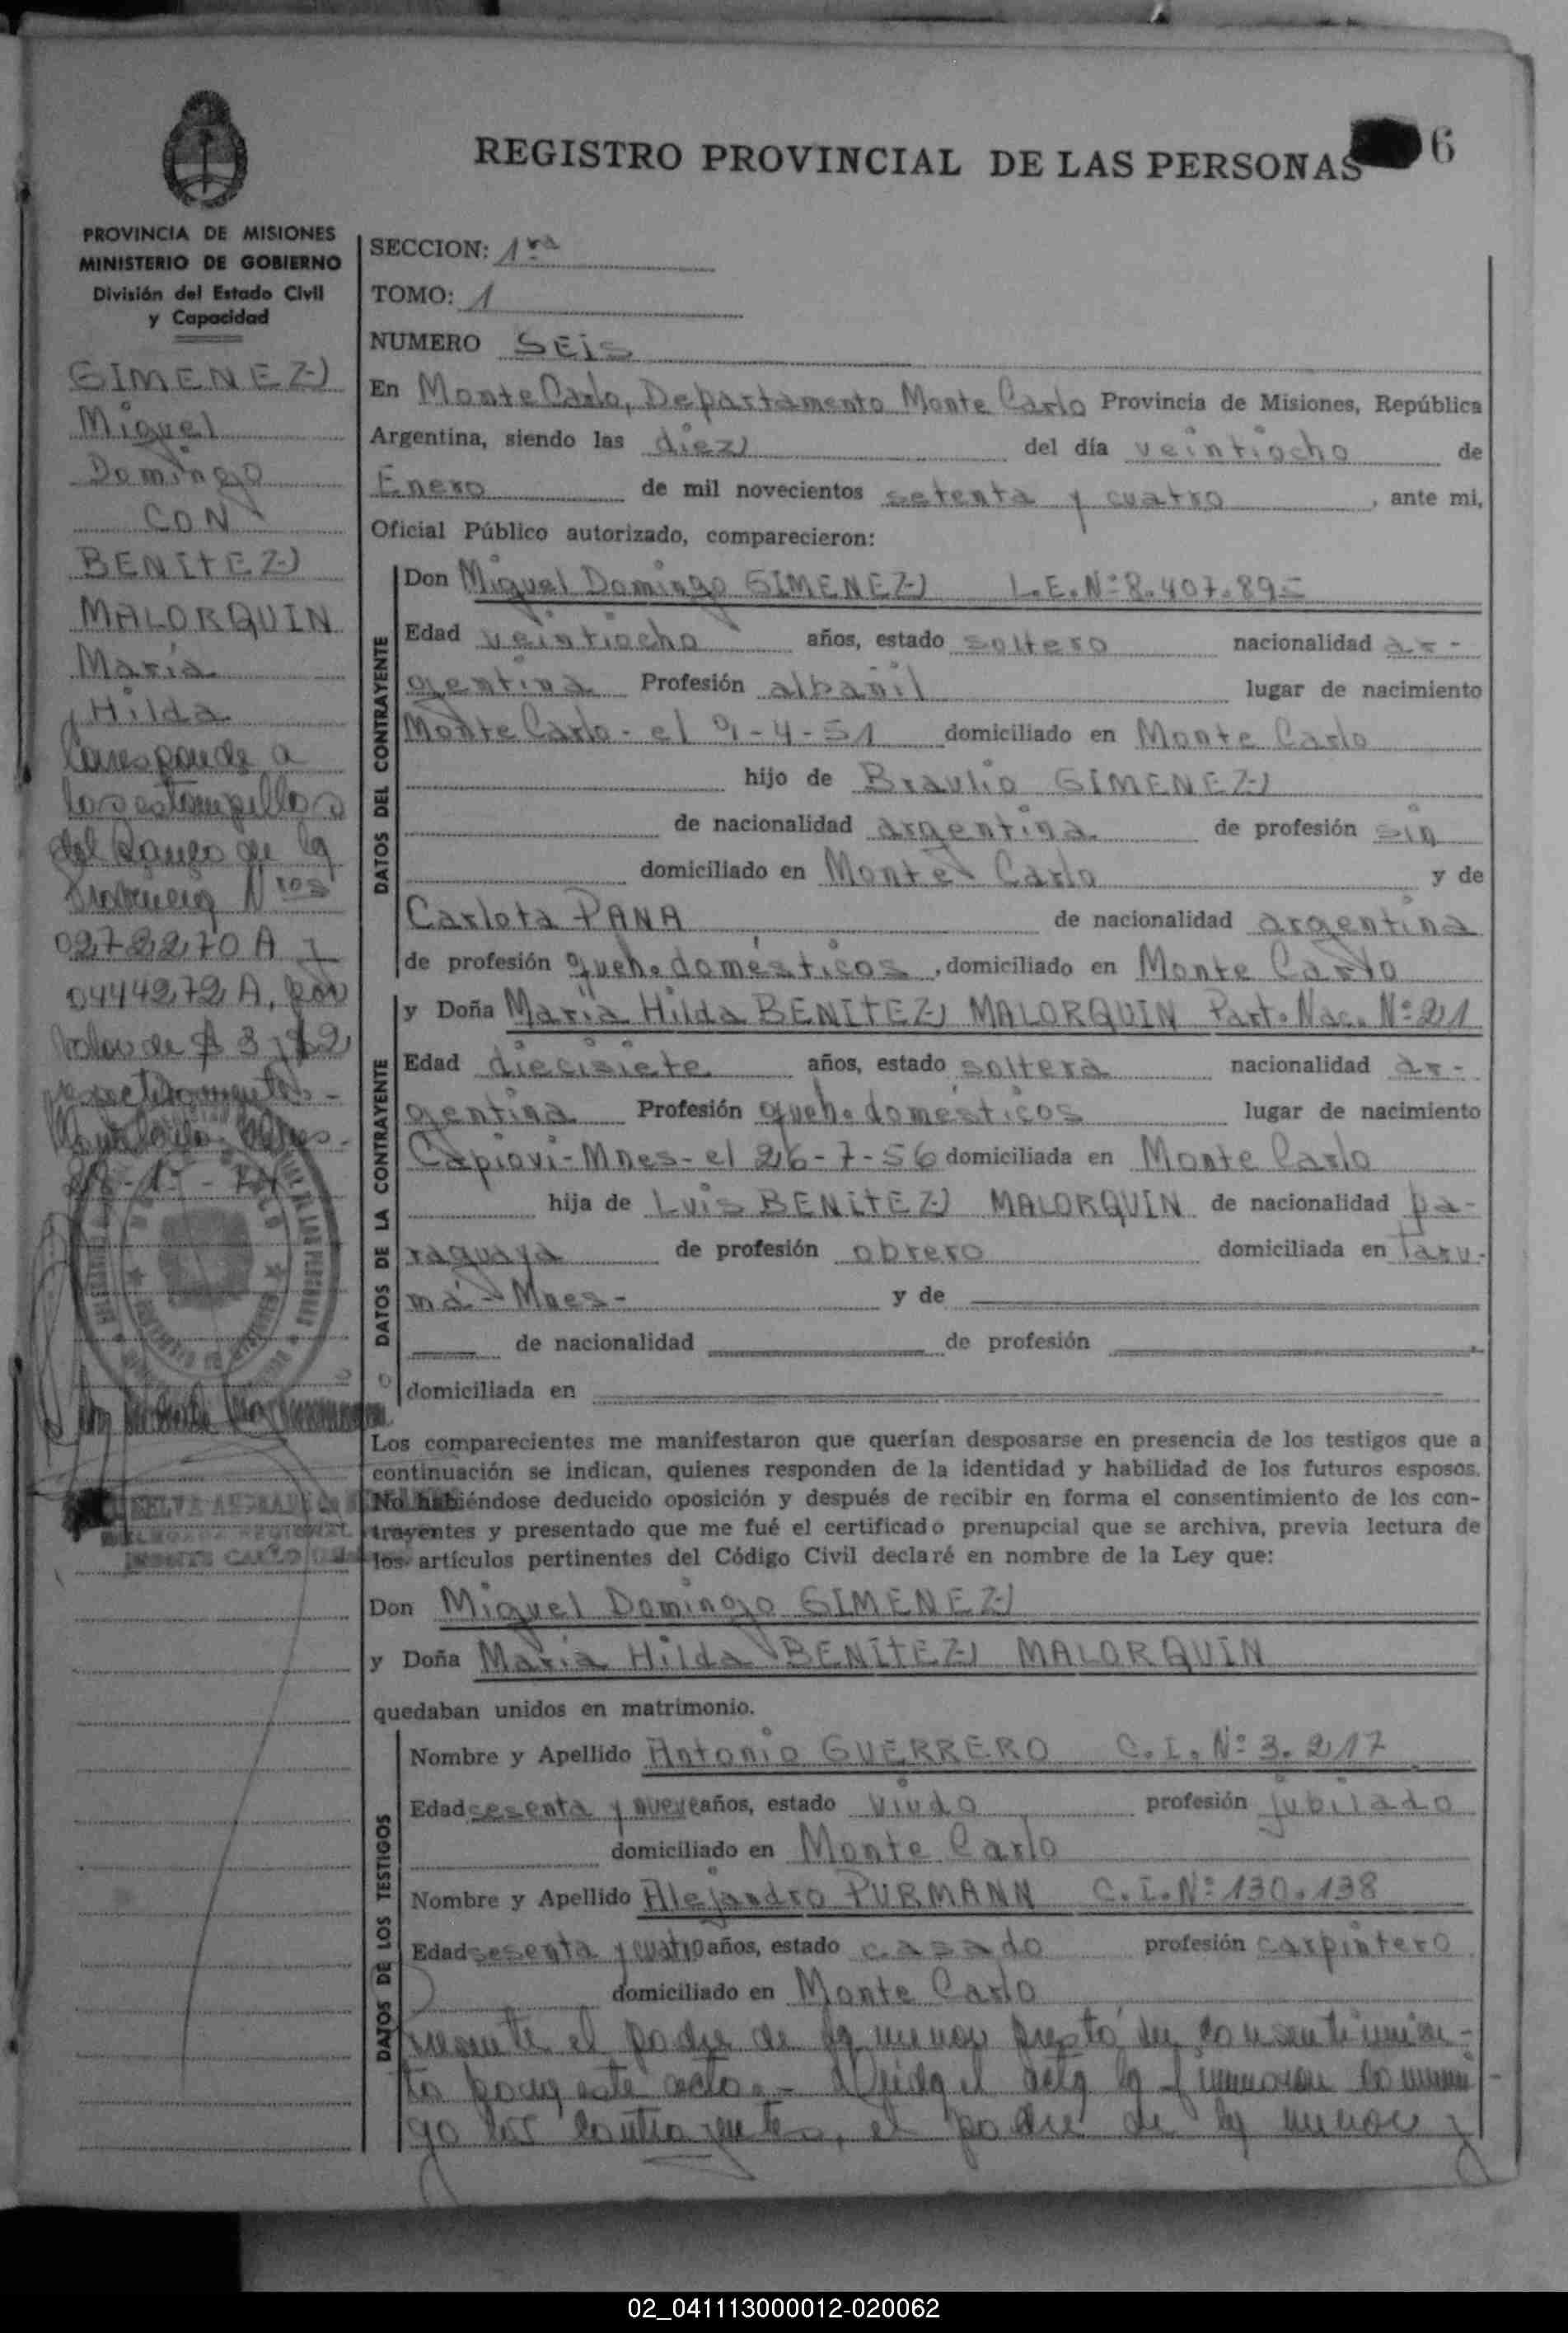 REGISTRO PROVINCIAL DE LAS PERSONAS
6
PROVINCIA DE MISIONES
MINISTERIO DE GOBIERNO
División del Estado Civil
y Capacidad
GIMENEZ
Miguel
Domingo
CON
BENITEZ
MALORQUIN
María
Hilda
Corresponde a
las estampillas
del Banco de la
Provincia Nros
0272270 A y
0444272 A, por
valor de $ 3 y $ 2
respectivamente -
28-1-74
SELVA ANDRADE
MONTE CARLO
SECCION: 1ra
TOMO: 1
NUMERO SEIS
En Monte Carlo, Departamento Monte Carlo Provincia de Misiones, República
Argentina, siendo las diez del día veintiocho de
Enero de mil novecientos setenta y cuatro, ante mi,
Oficial Público autorizado, comparecieron:
DATOS DEL CONTRAYENTE
Don Miguel Domingo GIMENEZ L.E.Nº 8.407.895
Edad veintiocho años, estado soltero nacionalidad ar-
gentina Profesión albañil lugar de nacimiento
Monte Carlo - el 9-4-51 domiciliado en Monte Carlo
hijo de Braulio GIMENEZ
de nacionalidad argentina de profesión sin
domiciliado en Monte Carlo y de
Carlota PANA de nacionalidad argentina
de profesión queh. domésticos, domiciliado en Monte Carlo
DATOS DE LA CONTRAYENTE
y Doña María Hilda BENITEZ MALORQUIN Part. Nac. Nº 21
Edad diecisiete años, estado soltera nacionalidad ar-
gentina Profesión queh. domésticos lugar de nacimiento
Capiovi-Mnes- el 26-7-56 domiciliada en Monte Carlo
hija de Luis BENITEZ MALORQUIN de nacionalidad pa-
raguaya de profesión obrero domiciliada en Taru-
má - Mnes - y de
de nacionalidad de profesión
domiciliada en
Los comparecientes me manifestaron que querían desposarse en presencia de los testigos que a
continuación se indican, quienes responden de la identidad y habilidad de los futuros esposos.
No habiéndose deducido oposición y después de recibir en forma el consentimiento de los con-
trayentes y presentado que me fué el certificado prenupcial que se archiva, previa lectura de
los artículos pertinentes del Código Civil declaré en nombre de la Ley que:
Don Miguel Domingo GIMENEZ
y Doña María Hilda BENITEZ MALORQUIN
quedaban unidos en matrimonio.
DATOS DE LOS TESTIGOS
Nombre y Apellido Antonio GUERRERO C.I.Nº 3.217
Edad sesenta y nueve años, estado viudo profesión jubilado
domiciliado en Monte Carlo
Nombre y Apellido Alejandro PURMANN C.I.Nº 130.138
Edad sesenta y cuatro años, estado casado profesión carpintero
domiciliado en Monte Carlo
Presente el padre de la menor prestó su consentimien-
to para este acto.- Leída el acta la firmaron conmi
go los contrayentes, el padre de la menor y
02_041113000012-020062